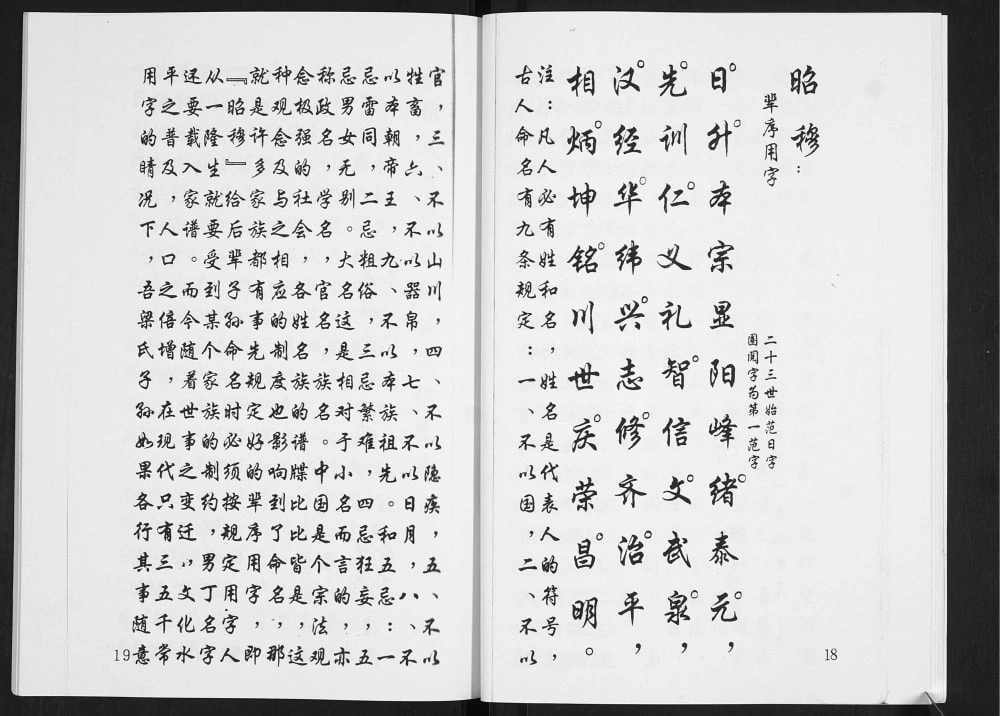 昭穆：
辈序用字
二十三世始范日字
圈闋字为第一范字
日升本宗显阳峰绪泰元，
先训仁义礼智信文武泉，
汉经华纬兴志修齐治平，
相炳坤铭川世庆荣昌明。
注：凡人必有姓和名，姓名是代表人的符号，
古人命名有九条规定：一、不以国，二、不以
18
官，三、不以山川，四、不以隐疾，五、不以
牲畜，六、不以器帛，七、不以日月，八、不
以本朝，帝王，九、不以本族祖先。和五忌：一
忌雷同，二忌粗俗，三忌繁难，四忌狂妄，五
忌男女无别。大名这是相对于小名而言的，亦
称政名，学名，官名，族名。中国是个宗法观
念极强的社会，各姓名族的谱牒比比皆是，这
种观念及与之相应的制度也影响到了命名，那
就是许多家族都有事先规定好的辈序用字，即
『昭移』给后辈子孙命名时必须按规定用字，人
从一隆生就要受到某个家族的制约，男丁名字
还要载入家谱。而今随着世事之变迁，文化水
平之普及，人口之倍增，在现代只有三五千常
用字的睛况下，吾梁氏子孙如果各行其事随意
19